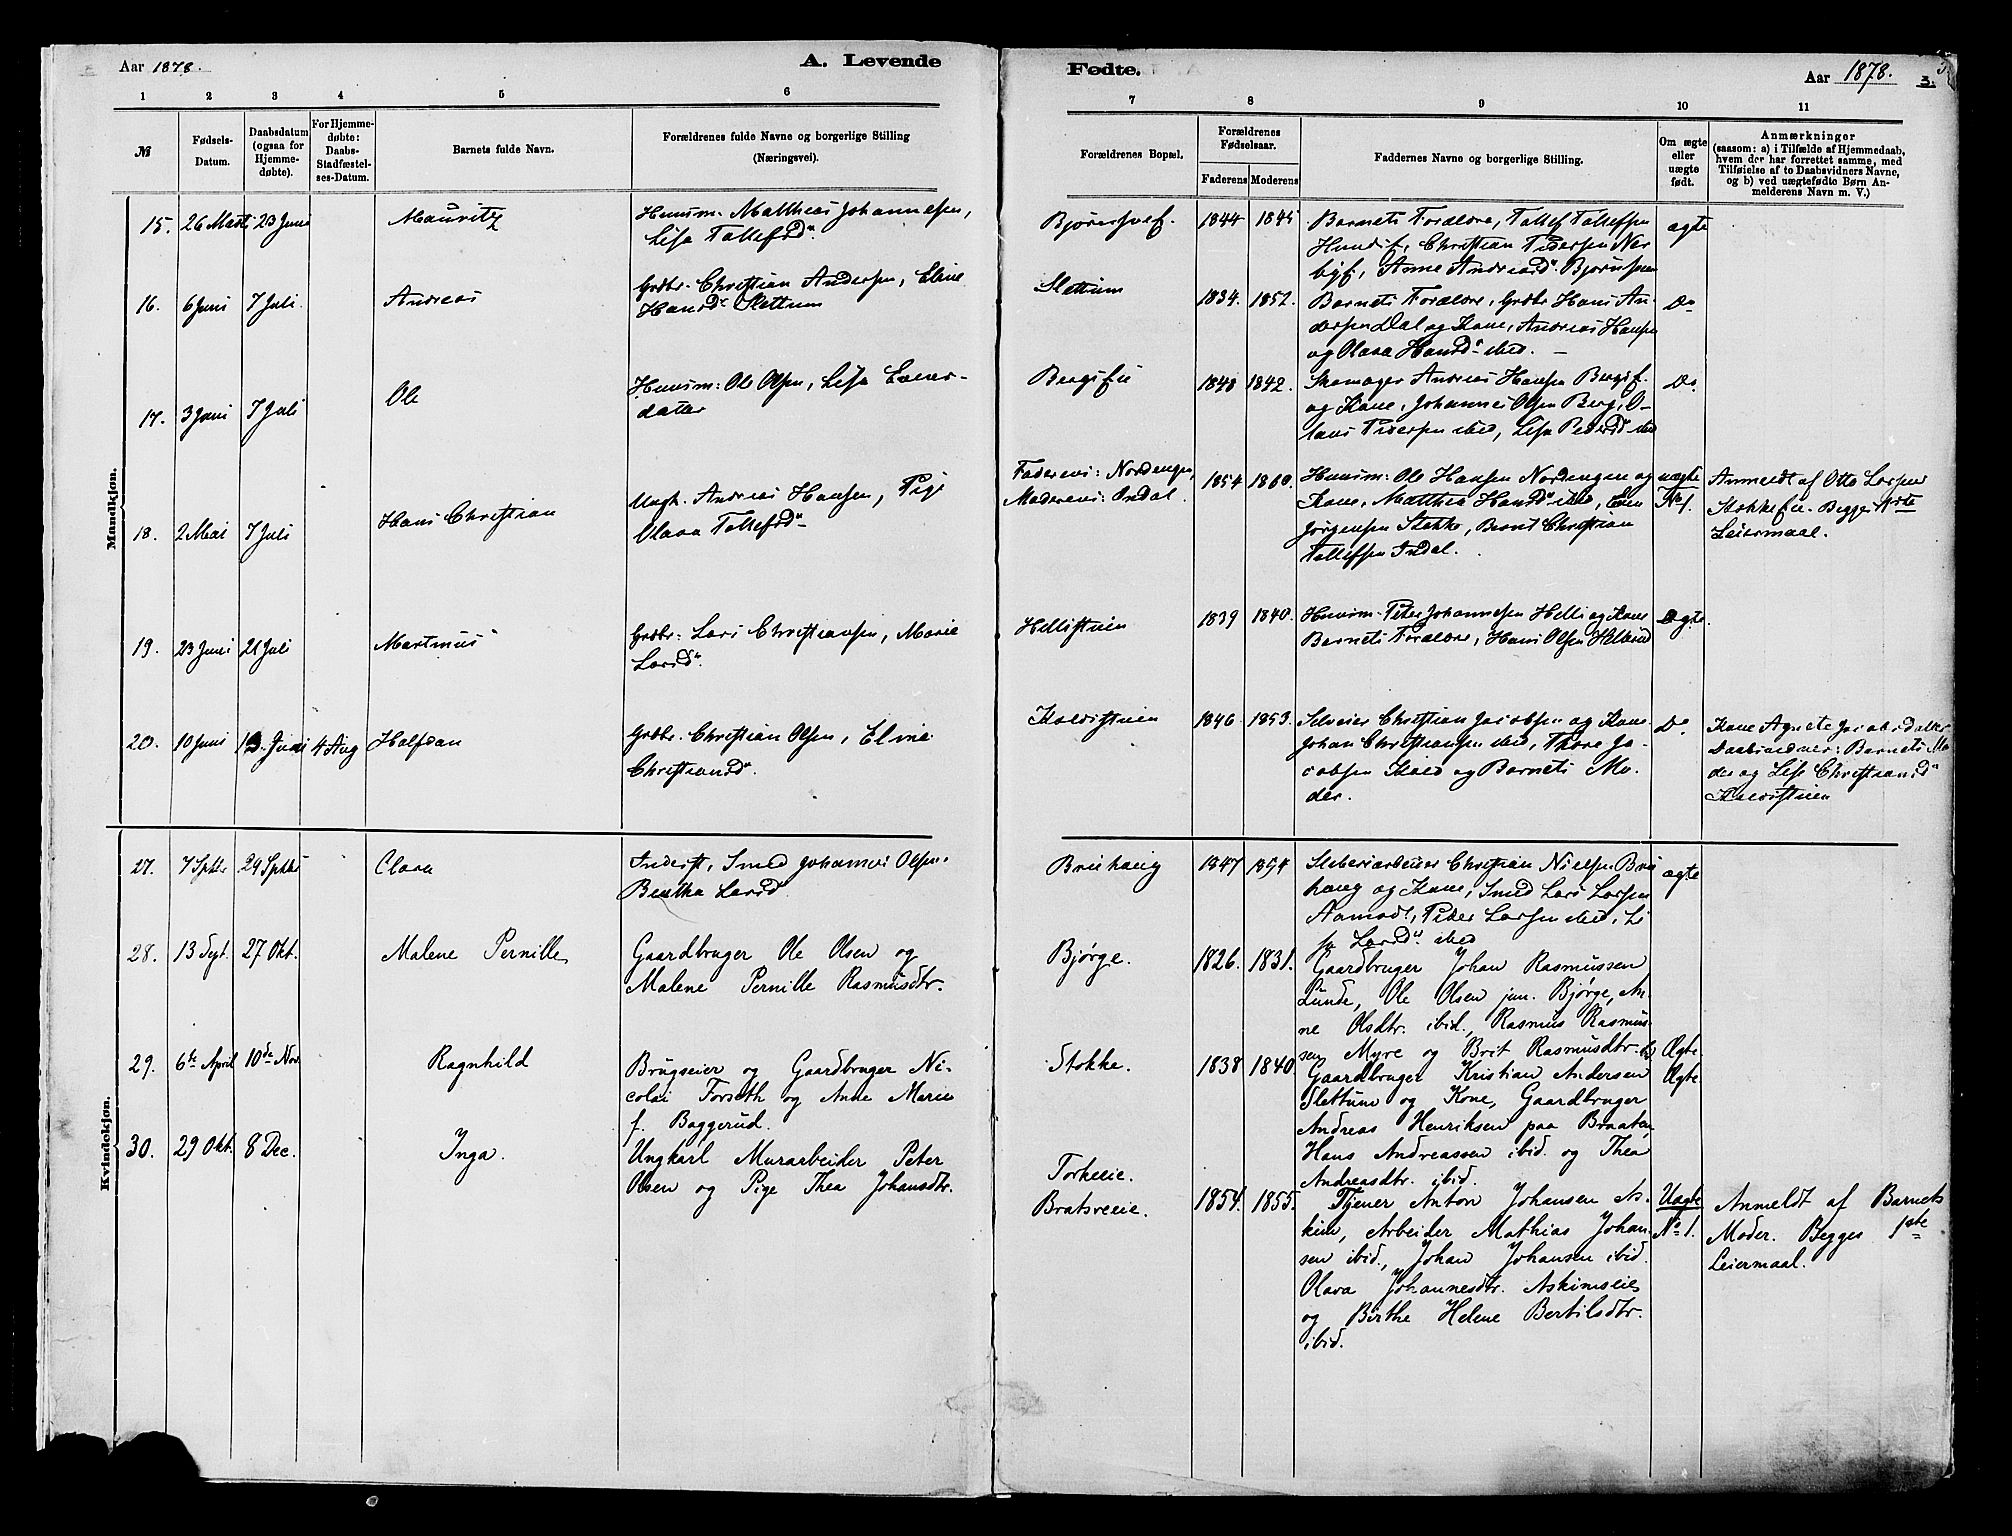 Aar 1878.
A. Levende
Fødte.
Aar 1878.
3.
1 2 3 4 5 6 7 8 9 10 11
№
Fødsels-
Datum.
Daabsdatum
(ogsaa for
Hjemme-
døbte).
For Hjemme-
døbte:
Daabs-
Stadfæstel-
ses-Datum.
Barnets fulde Navn.
Forældrenes fulde Navne og borgerlige Stilling
(Næringsvei).
Forældrenes Bopæl.
Forældrenes
Fødselsaar.
Faderens Moderens
Faddernes Navne og borgerlige Stilling.
Om ægte
eller
uægte
født.
Anmærkninger
(saasom: a) i Tilfælde af Hjemmedaab,
hvem der har forrettet samme, med
Tilføielse af to Daabsvidners Navne,
og b) ved uægtefødte Børn An-
melderens Navn m. V.)
Mandkjøn.
15. 26 Marts 23 Juni
Mauritz
Huusm: Matthias Johannesen,
Lisa Tollefsd.
1844 1845
Barnets Forældre, Tollef Tollefsen
Christian Pedersen
Anne Andreasd.
ægte
16. 6 Juni 7 Juli
Andreas
Grdbr. Christian Andersen, Eline
Hansd. Slettum
Slettum
1834. 1852.
Barnets Forældre, Grdbr Hans An-
dersen Dal og Kone, Andreas Hansen
og Olava Hansd. ibid.
Do
17. 3 Juni 7 Juli
Ole
Huusm: Ole Olsen, Lisa
datter
1848 1842.
Skomager Andreas Hansen
og Kone, Johannes Olsen Berg, O-
laus Pedersen ibid, Lisa Pedersd ibid
Do.
18. 2 Mai 7 Juli
Hans Christian
Ungk. Andreas Hansen, Pige
Olava Tollefsd.
Faderens: Nordengen,
Moderens: Indal.
1854 1860.
Huusm: Ole Hansen Nordengen og
Kone, Matthea Hansd. ibid, Even
Jørgensen Stokke, Bernt Christian
Tollefsen Indal.
uægte
No 1.
Anmeldt af Otto Larsen
Stokkeeie. Begges 1ste
Leiermaal.
19. 23 Juni 21 Juli
Martinus
Grdbr. Lars Christiansen, Marie
Larsd.
Hellistuen
1839 1840.
Huusm. Peter Johannesen Helli og Kone
Barnets Forældre, Hans Olsen
ægte.
20. 10 Juni 13. Juni 4 Aug
Halfdan
Grdbr. Christian Olsen, Eline
Christiansd.
1846 1853.
Christian Jacobsen og Kone
Johan Christiansen ibid, Thore Ja-
cobsen og Barnets Mo-
der.
Do
Kone Agnete Jacobsdatter
Daabsvidner: Barnets Mo
der og Lise Christiansd.
Kvindekjøn.
27. 7 Septbr 29 Septbr
Clara
Inderst, Smed Johannes Olsen,
Larsd
1847 1854
Christian Nielsen
haug og Kone, Smed Lars Larsen
Aamodt, Peder Larsen ibid, Li
sa Larsd. ibid
ægte
28. 13 Sept. 27 Okt.
Malene Pernille
Gaardbruger Ole Olsen og
Malene Pernille Rasmusdtr.
Bjørge.
1826. 1831.
Gaardbruger Johan Rasmussen
Lunde, Ole Olsen jun. Bjørge, An-
ne Olsdtr. ibid., Rasmus Rasmus-
sen Myre og Brit Rasmusdtr. ib
Ægte
29. 6te April 10de Nov.
Ragnhild
Brugseier og Gaardbruger Ni-
colai Forseth og Anne Marie
f. Baggerud.
Stokke.
1838 1840
Gaardbruger Kristian Andersen
Slettum og Kone, Gaardbruger
Andreas Henriksen paa Braaten,
Hans Andreassen ibid. og Thea
Andreasdtr. ibid.
Ægte
30. 29 Okt. 8 Dec.
Inga.
Ungkarl Murarbeider Peter
Olsen og Pige Thea Johansdtr.
Torkeeie.
Bratsveeie.
1854. 1855.
Tjener Anton Johansen As-
kim, Arbeider Mathias Johan-
sen ibid., Johan Johansen ibid.
Olava Johannesdtr. Askimseie
og Birthe Helene Bertilsdtr.
ibid.
Uægte
No 1.
Anmeldt af Barnets
Moder. Begges 1ste
Leiermaal.